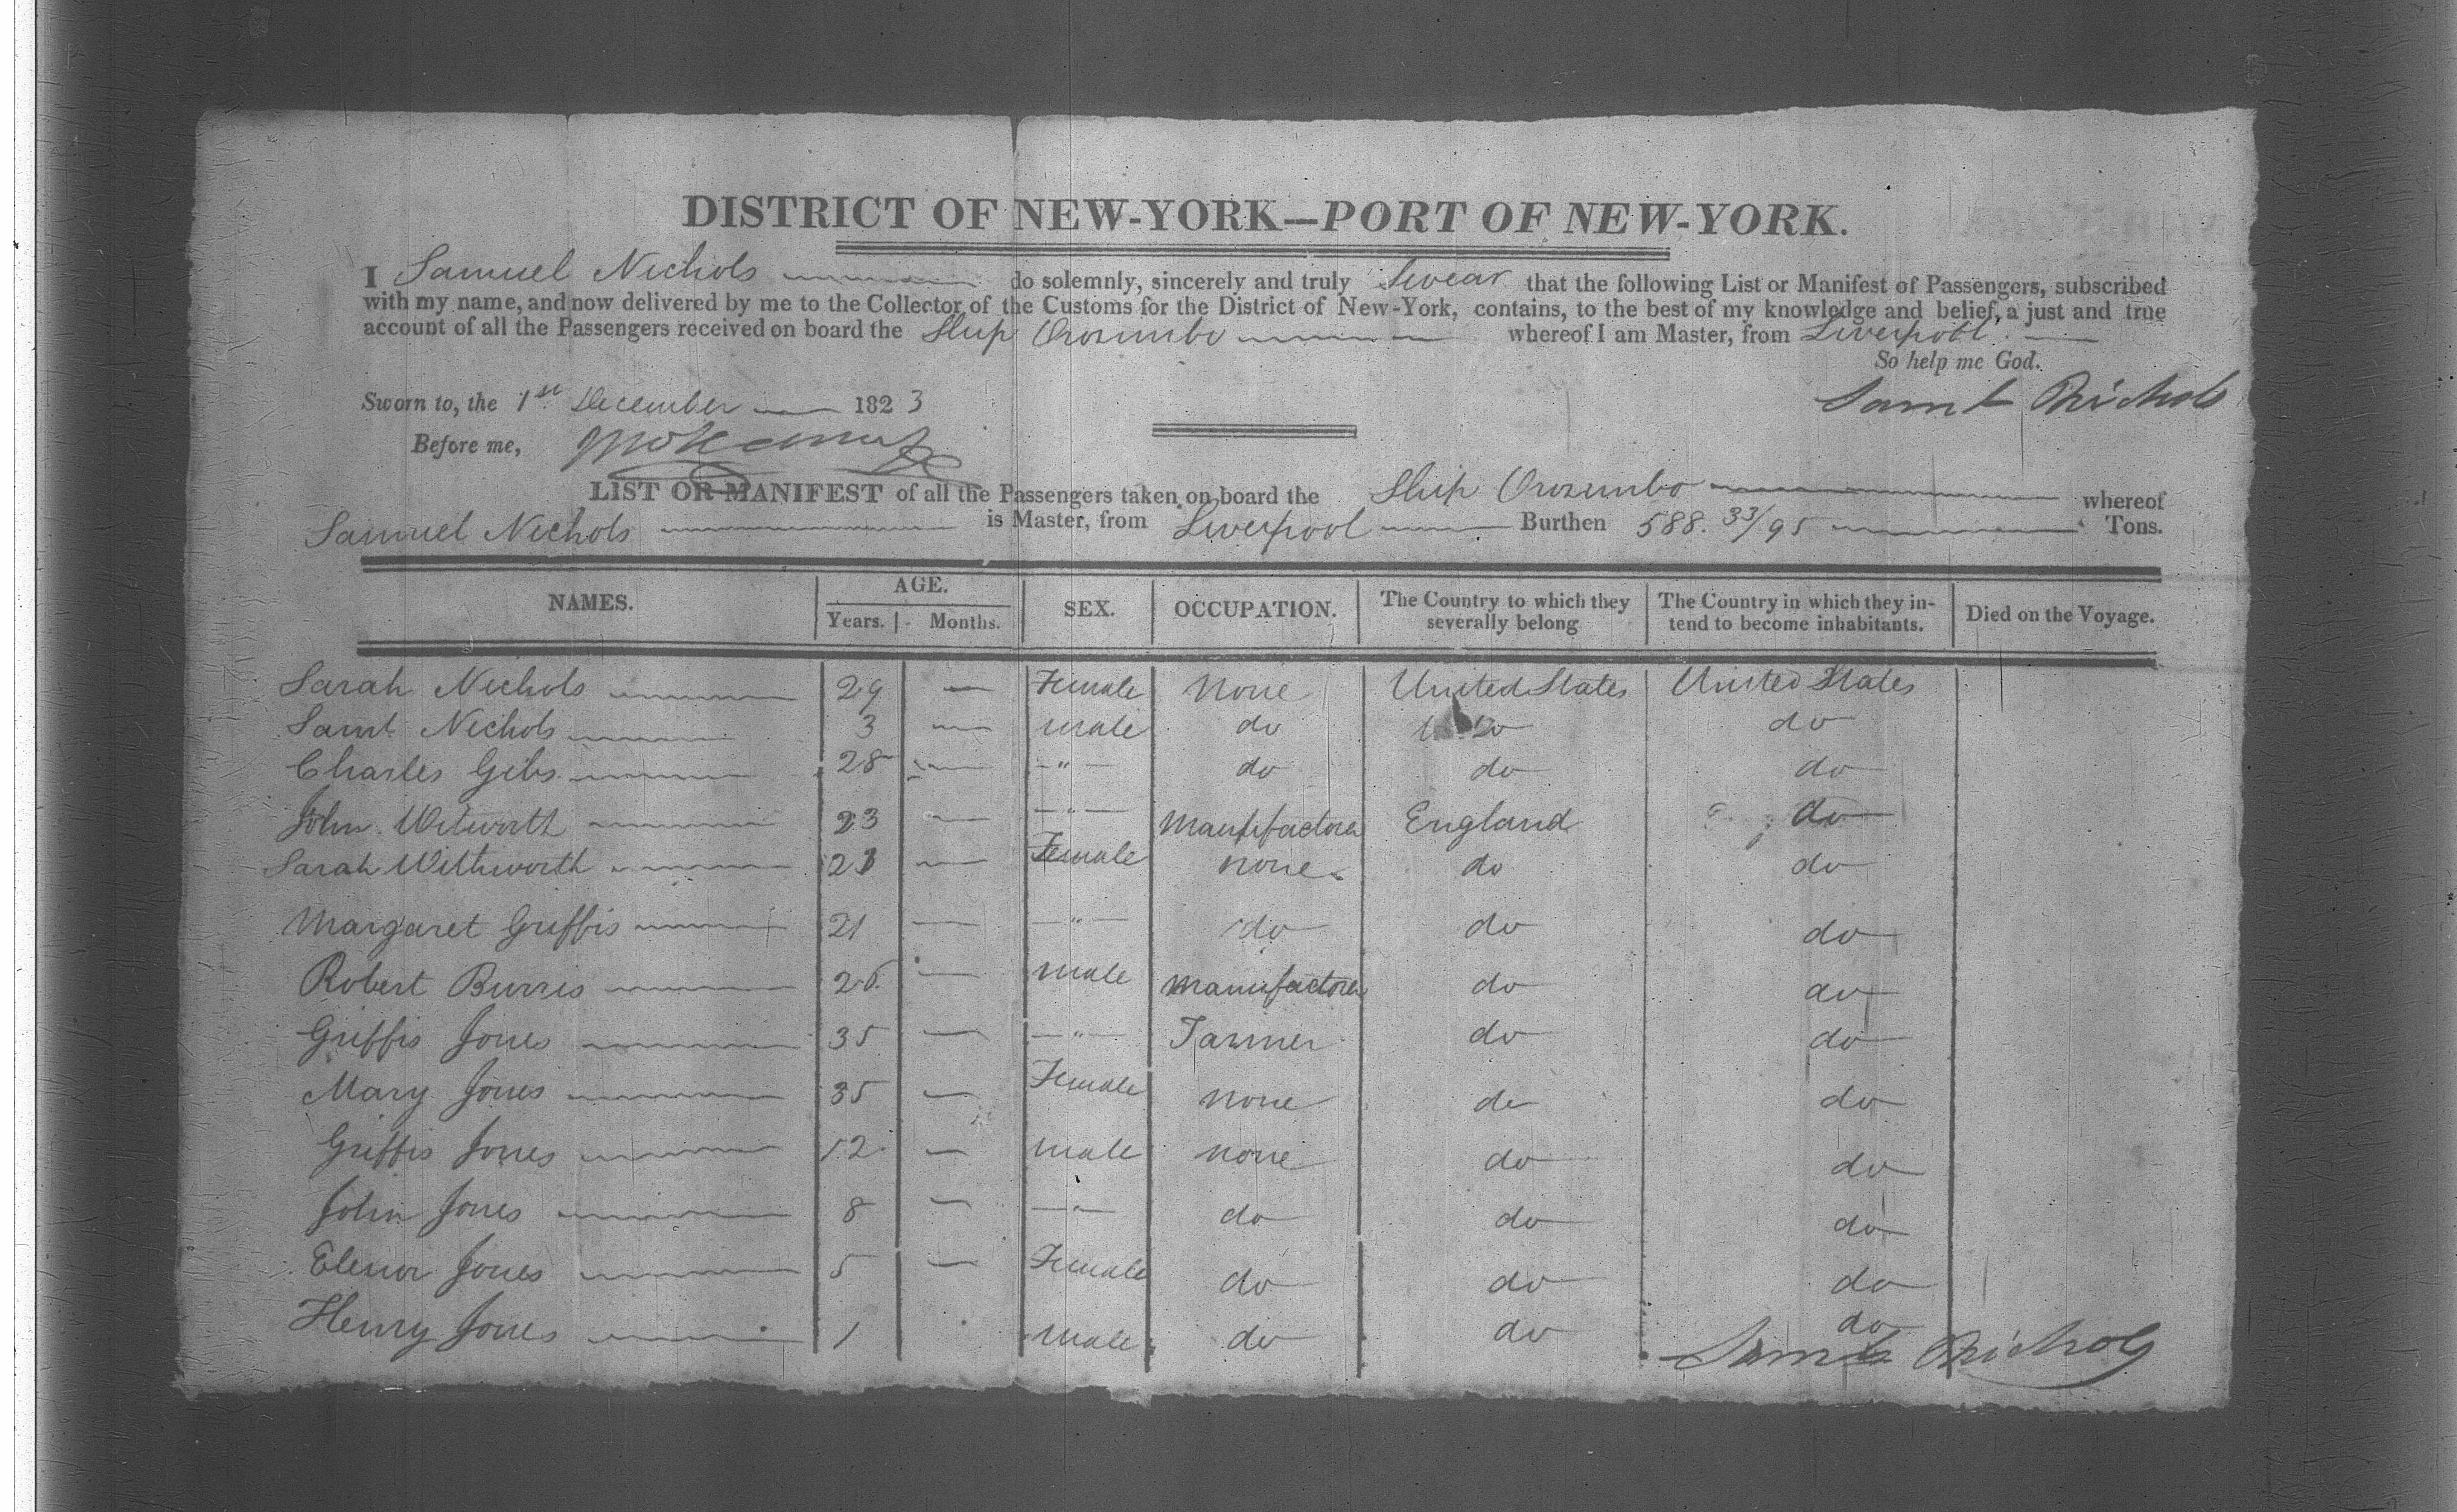 DISTRICT OF NEW-YORK—PORT OF NEW-YORK.
I Samuel Nichols do solemnly, sincerely and truly Swear that the following List or Manifest of Passengers, subscribed
with my name, and now delivered by me to the Collector of the Customs for the District of New-York, contains, to the best of my knowledge and belief, a just and true
account of all the Passengers received on board the Ship Orozimbo whereof I am Master, from Liverpool.
So help me God.
Sworn to, the 1st December 1823 Saml Nichols
Before me,
LIST OR MANIFEST of all the Passengers taken on board the Ship Orozimbo whereof
Samuel Nichols is Master, from Liverpool Burthen 588. 33/95 Tons.
NAMES. AGE. Years. Months. SEX. OCCUPATION. The Country to which they severally belong The Country in which they intend to become inhabitants. Died on the Voyage.
Sarah Nichols 29 — Female None United States United States
Saml. Nichols 3 — male do Do do
Charles Gibs 28 — " do do do
John Witworth 23 — " Manufactorer England do
Sarah Withworth 21 — Female none do do
Margaret Griffis 21 — " do do do
Robert Burris 26 — male Manufactorer do do
Griffis Jones 35 — " Farmer do do
Mary Jones 35 — Female none do do
Griffis Jones 12 — male none do do
John Jones 8 — " do do do
Elenor Jones 5 — Female do do do
Henry Jones 1 male do do do
Saml Nichols